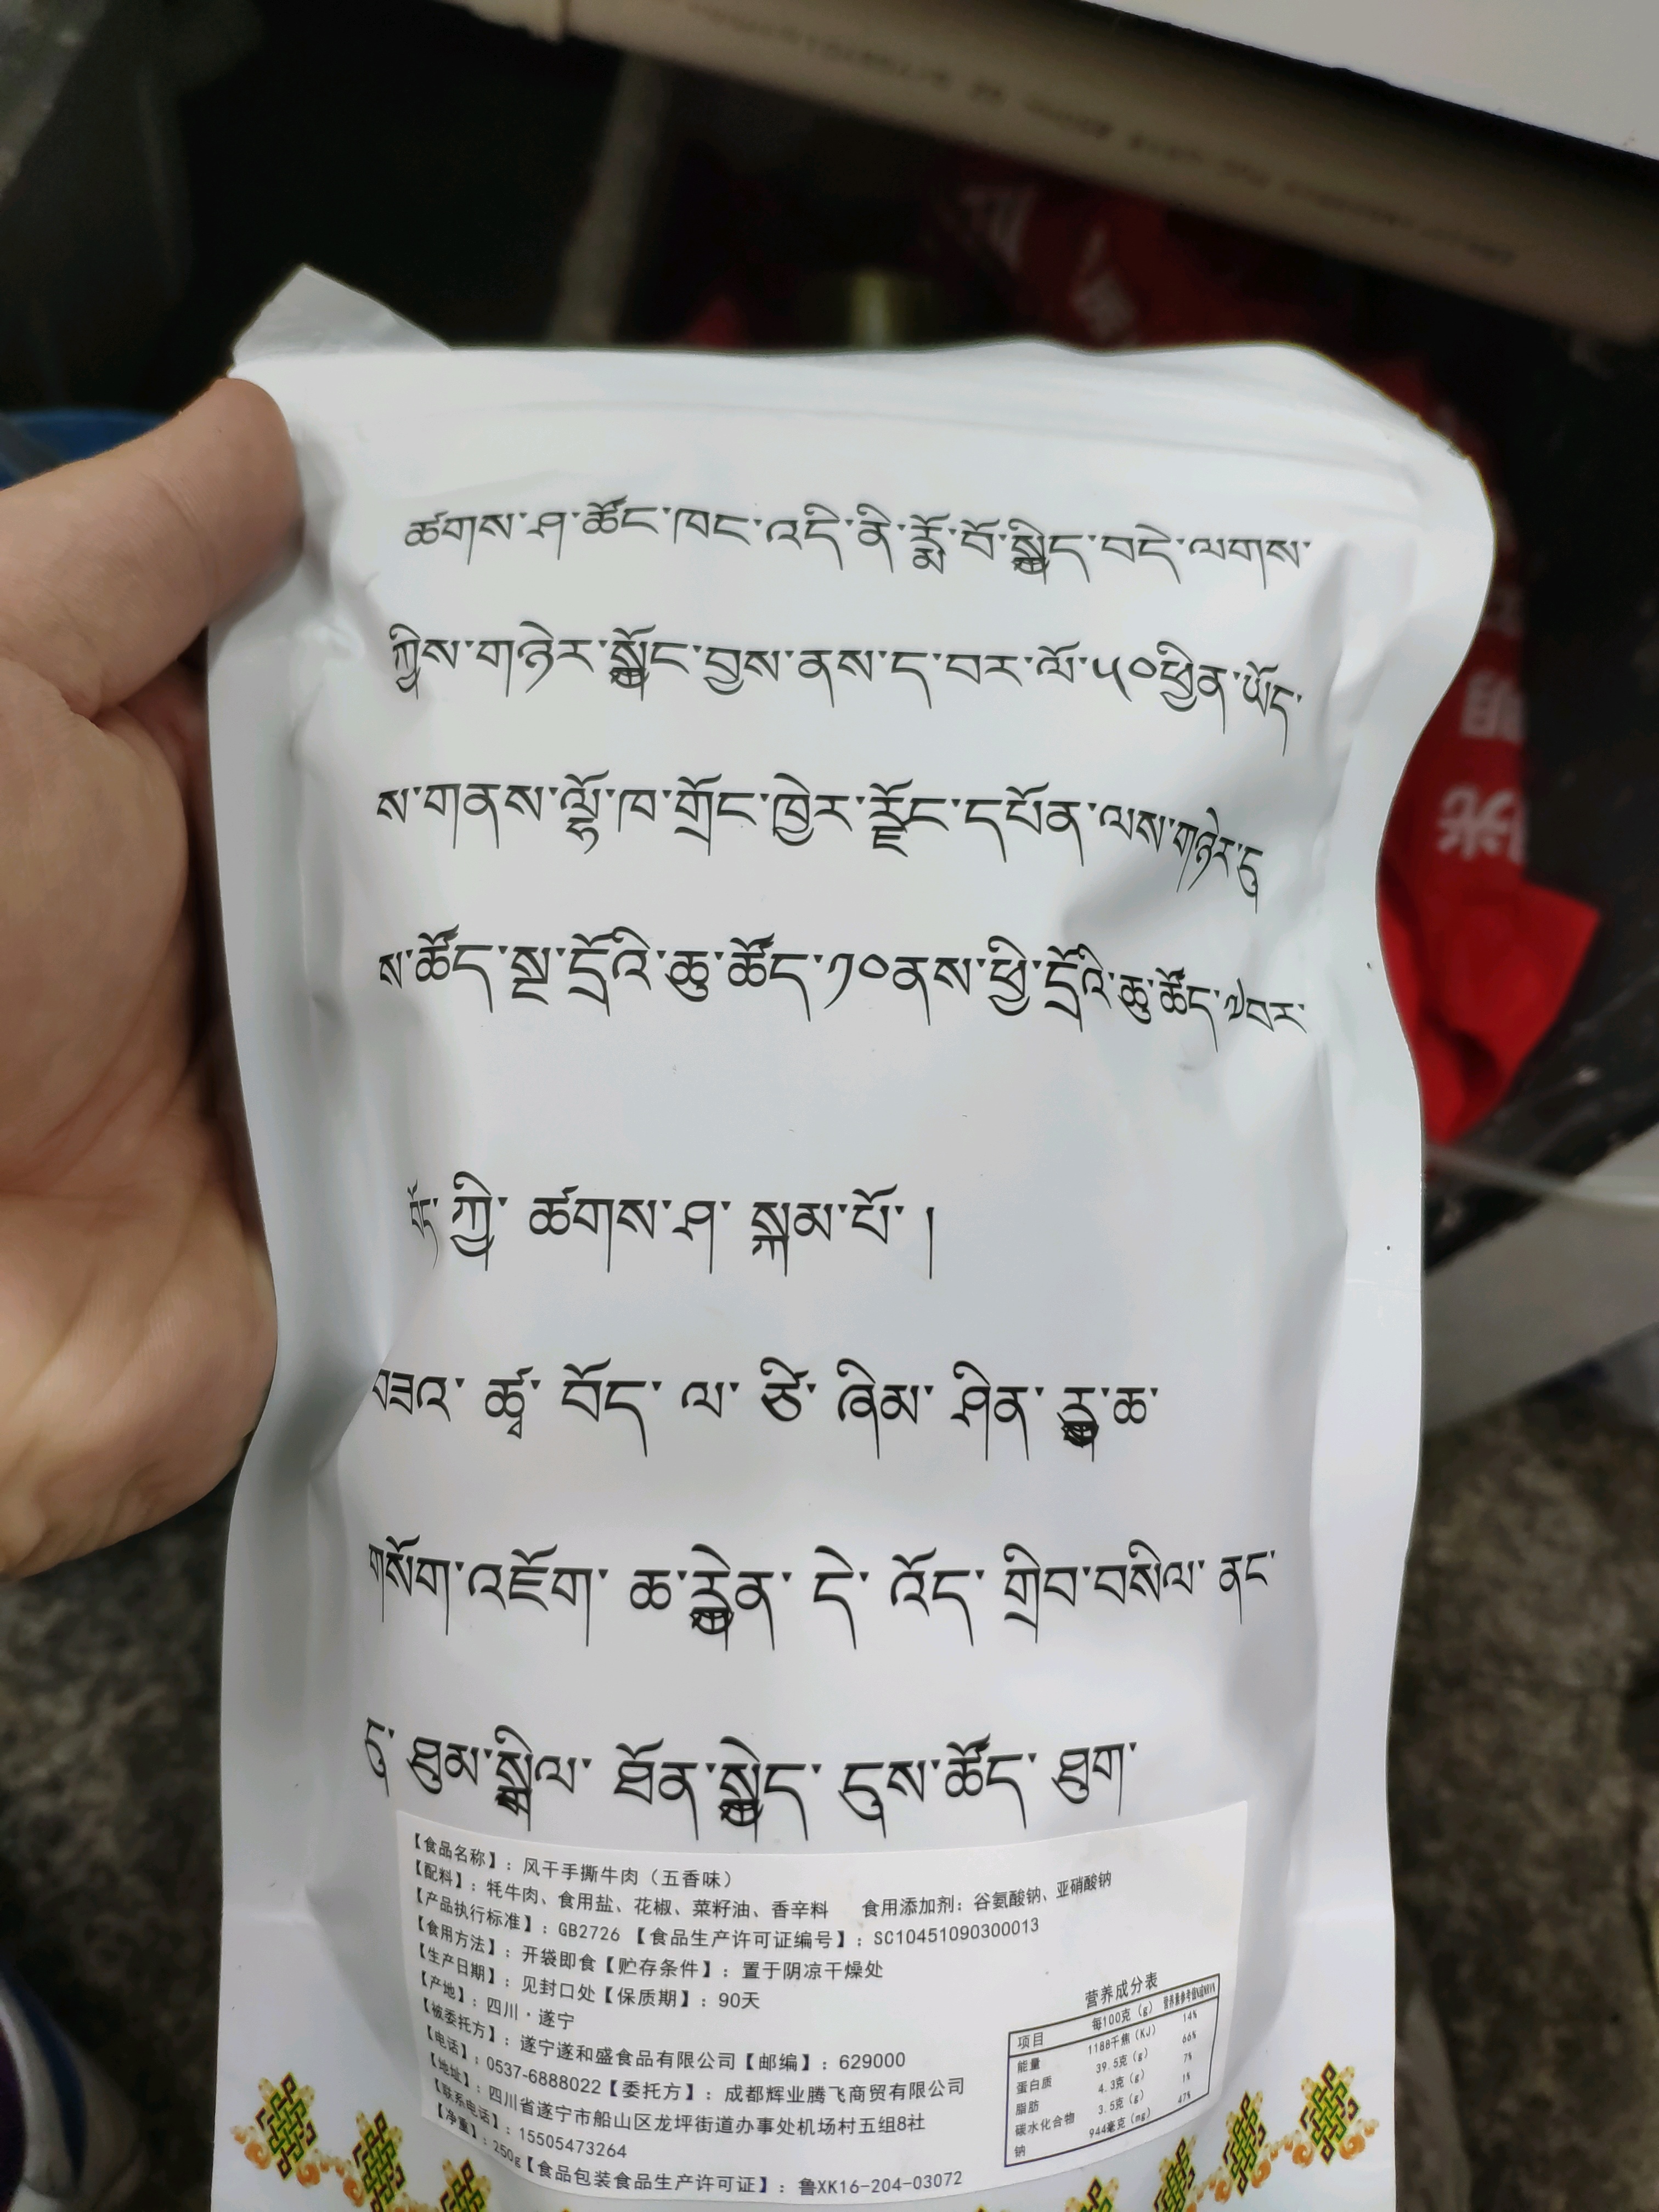 ཚགས་ཤ་ཚོང་ཁང་འདི་ནི་རྨོ་བོ་སྐྱིད་བདེ་ལགས་
ཀྱིས་གཉེར་སྐྱོང་བྱས་ནས་ད་བར་ལོ་༥༠ཕྱིན་ཡོད་
ས་གནས་ལྷོ་ཁ་གྲོང་ཁྱེར་རྫོང་དཔོན་ལས་གཉེར་དུ
ས་ཚོད་སྔ་དྲོའི་ཆུ་ཚོད་༡༠ནས་ཕྱི་དྲོའི་ཆུ་ཚོད་༧བར་
བོད་ཀྱི་ ཚགས་ཤ་ སྐམ་པོ་ །
བཟའ་ ཚྭ་ བོད་ ལ་ ཙི་ ཞིམ་ ཤིན་ རྒྱུ་ཆ་
གསོག་འཇོག་ ཆ་རྐྱེན་ དེ་ འོད་ གྲིབ་བསིལ་ ནང་
དུ་ ཐུམ་སྒྲིལ་ ཐོན་སྐྱེད་ དུས་ཚོད་ ཐུག་
【食品名称】：风干手撕牛肉（五香味）
【配料】：牦牛肉、食用盐、花椒、菜籽油、香辛料 食用添加剂：谷氨酸钠、亚硝酸钠
【产品执行标准】：GB2726 【食品生产许可证编号】：SC10451090300013
【食用方法】：开袋即食【贮存条件】：置于阴凉干燥处
【生产日期】：见封口处【保质期】：90天
【产地】：四川·遂宁
【被委托方】：遂宁遂和盛食品有限公司【邮编】：629000
【电话】：0537-6888022【委托方】：成都辉业腾飞商贸有限公司
【地址】：四川省遂宁市船山区龙坪街道办事处机场村五组8社
【联系电话】：15505473264
【净重】：250g【食品包装食品生产许可证】：鲁XK16-204-03072
营养成分表
项目 每100克（g） 营养素参考值%或NRV%
能量 1188千焦（KJ） 14%
蛋白质 39.5克（g） 66%
脂肪 4.3克（g） 7%
碳水化合物 3.5克（g） 1%
钠 944毫克（mg） 47%